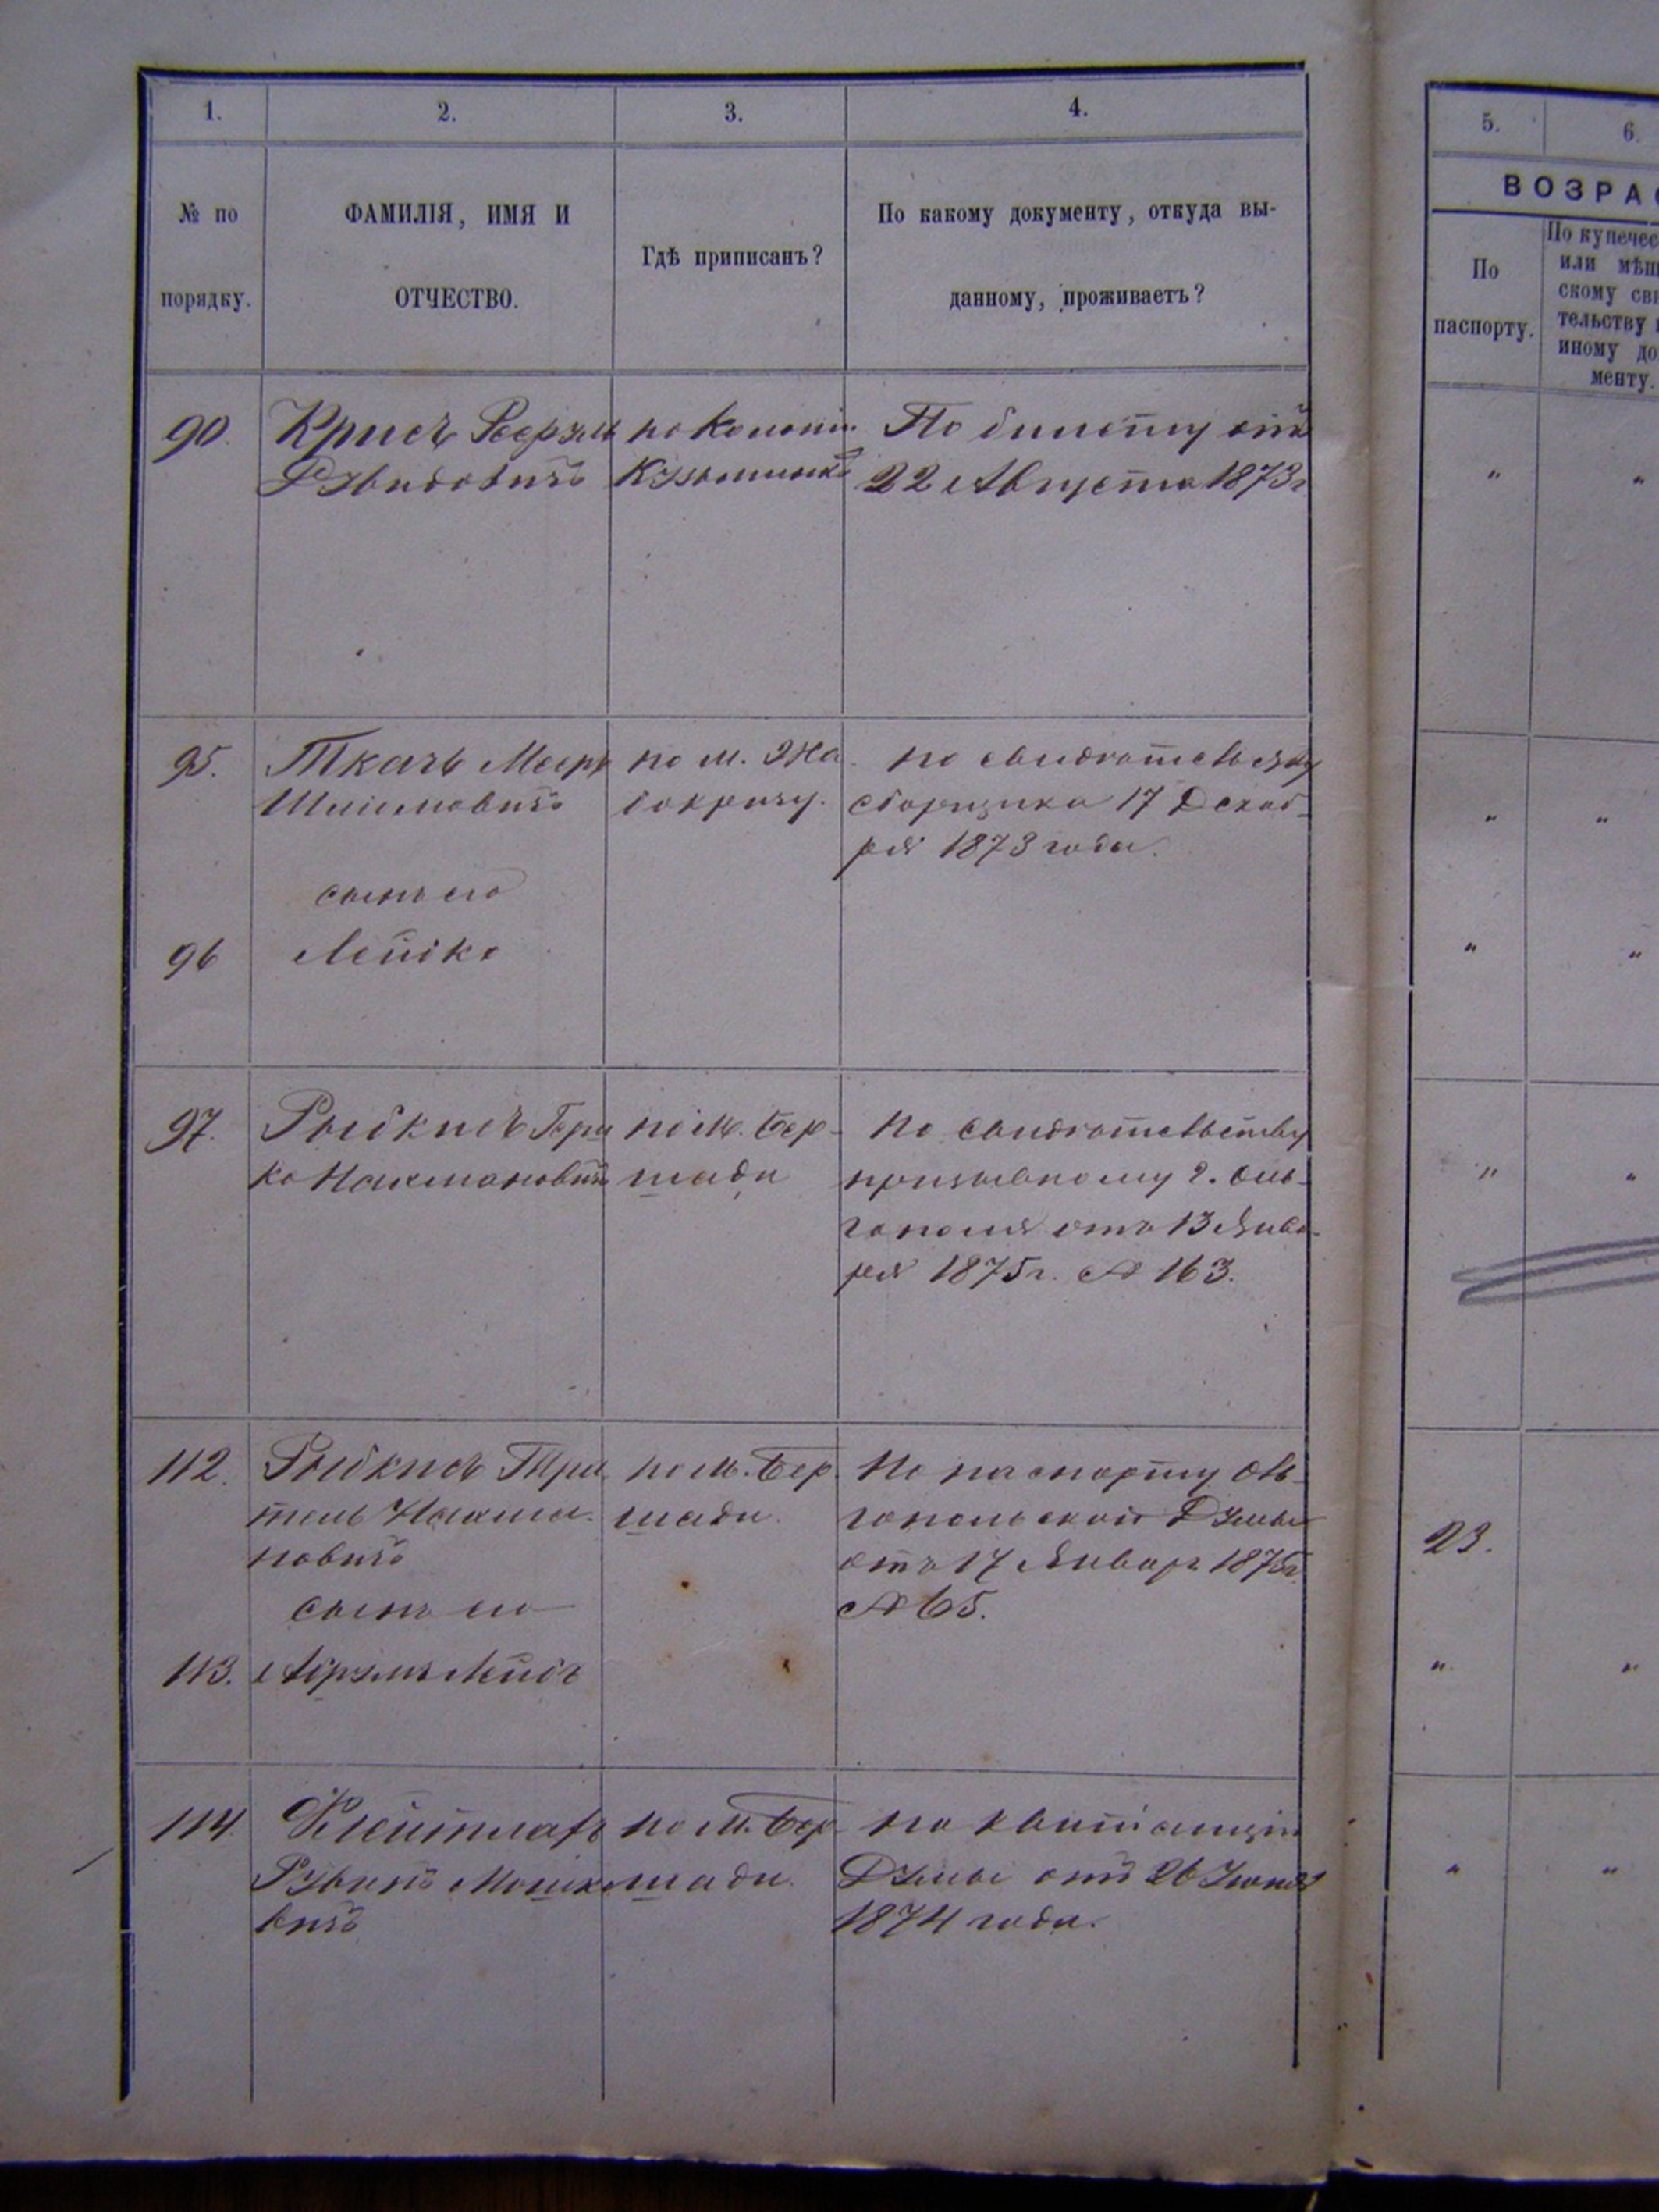 1. 2. 3. 4. 5. 6.
№ по
порядку.
ФАМИЛІЯ, ИМЯ И
ОТЧЕСТВО.
Гдѣ приписанъ?
По какому документу, откуда вы-
данному, проживаетъ?
ВОЗРА
По
паспорту.
По купечес
или мѣщ
скому сви
тельству
иному до
менту.
90.
по Колоніи
По билету отъ
22 Августа 1873 г
95.
Ткачъ Мееръ
Шлиомовичъ
по м. Жа
бокричу.
по свидѣтельству
сборщика 17 Декаб-
ря 1873 года.
сынъ его
96
Лейбко
97.
Рыбкисъ Герш
ко Нахмановичъ
по м. Бер-
шади
По свидѣтельству
призывному г. Оль-
гополя отъ 13 Янва-
ря 1875 г. № 163.
112.
Рыбкисъ
тель Нахма-
новичъ
по м. Бер
шади.
По паспорту Оль-
гопольской Думы
отъ 17 Январ 1875 г.
№ 65.
23.
сынъ его
113.
Абрумъ Лейбъ
114
Рувинъ Мошко
вичъ
по м. Бер
шади.
по квитанціи
Думы отъ 26 Іюня
1874 года.